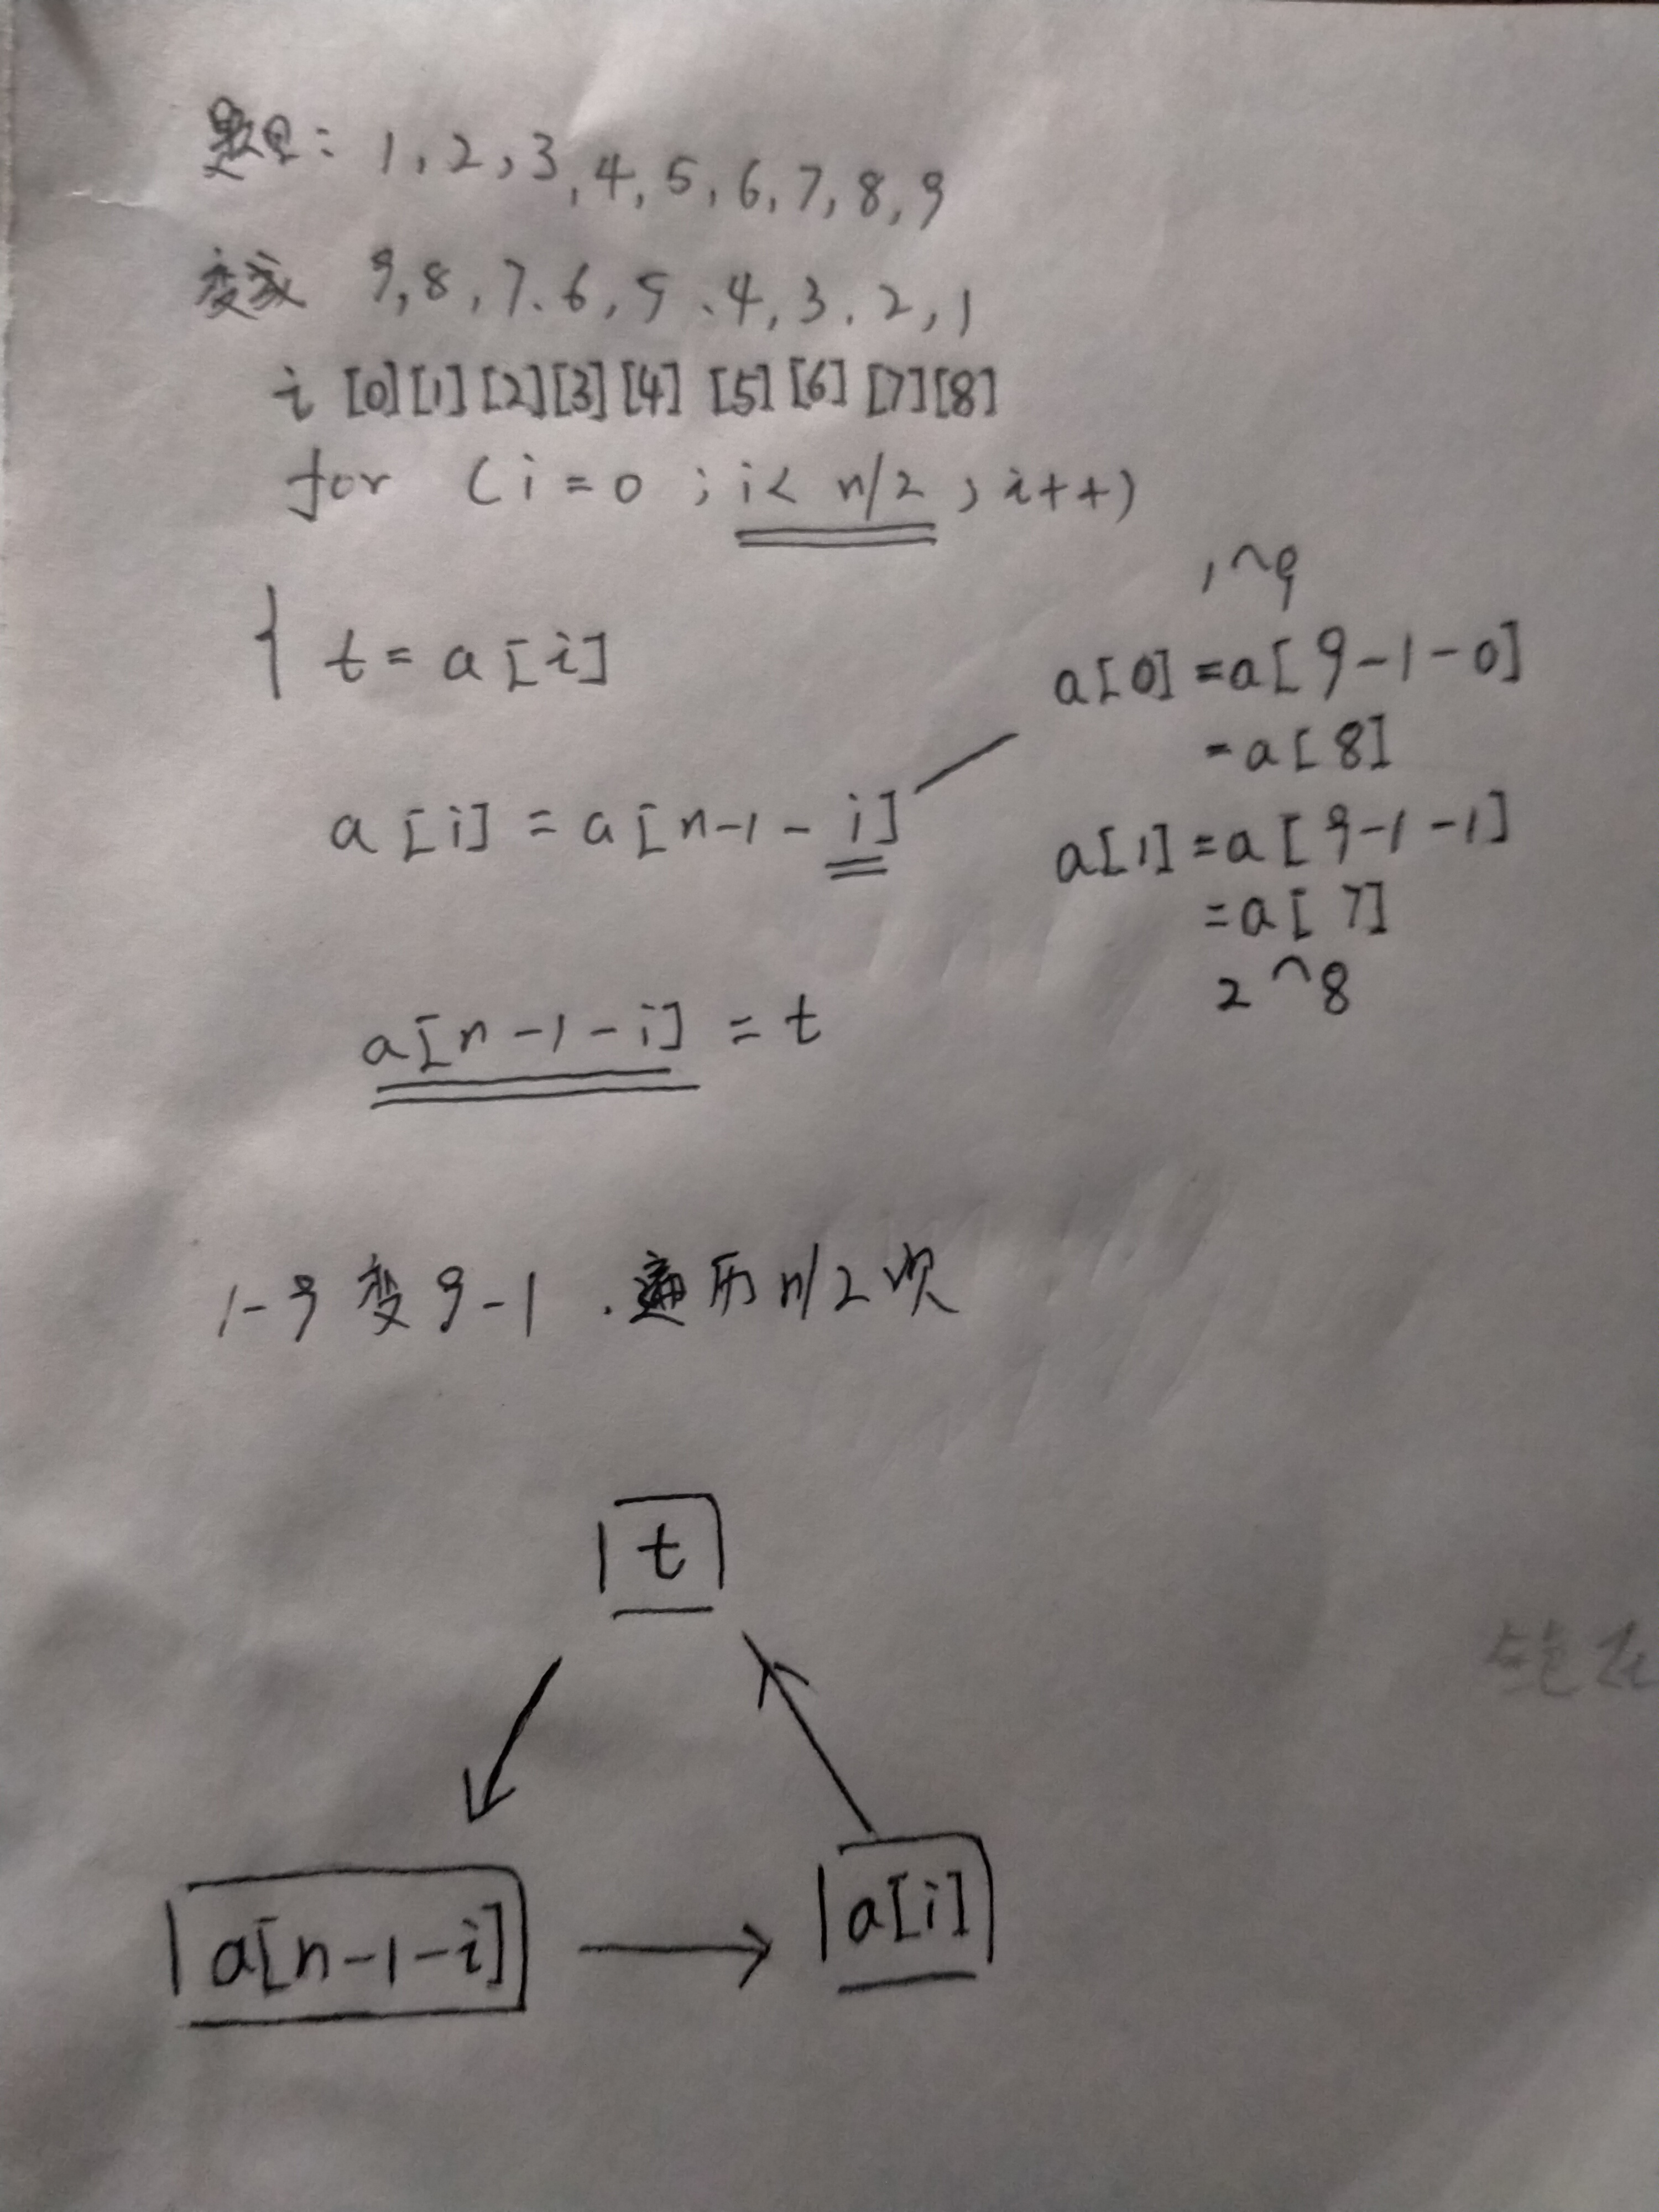 题目: 1,2,3,4,5,6,7,8,9
变成 9,8,7、6,5、4,3.2,1
i [0][1][2][3][4] [5][6][7][8]
for (i=0;i<n/2;i++)
{ t=a[i]
a[i]=a[n-1-i]
a[n-1-i]=t
1⌒9
a[0]=a[9-1-0]
=a[8]
a[1]=a[9-1-1]
=a[7]
2⌒8
1-9变9-1.遍历n/2次
t
a[n-1-i] → a[i]